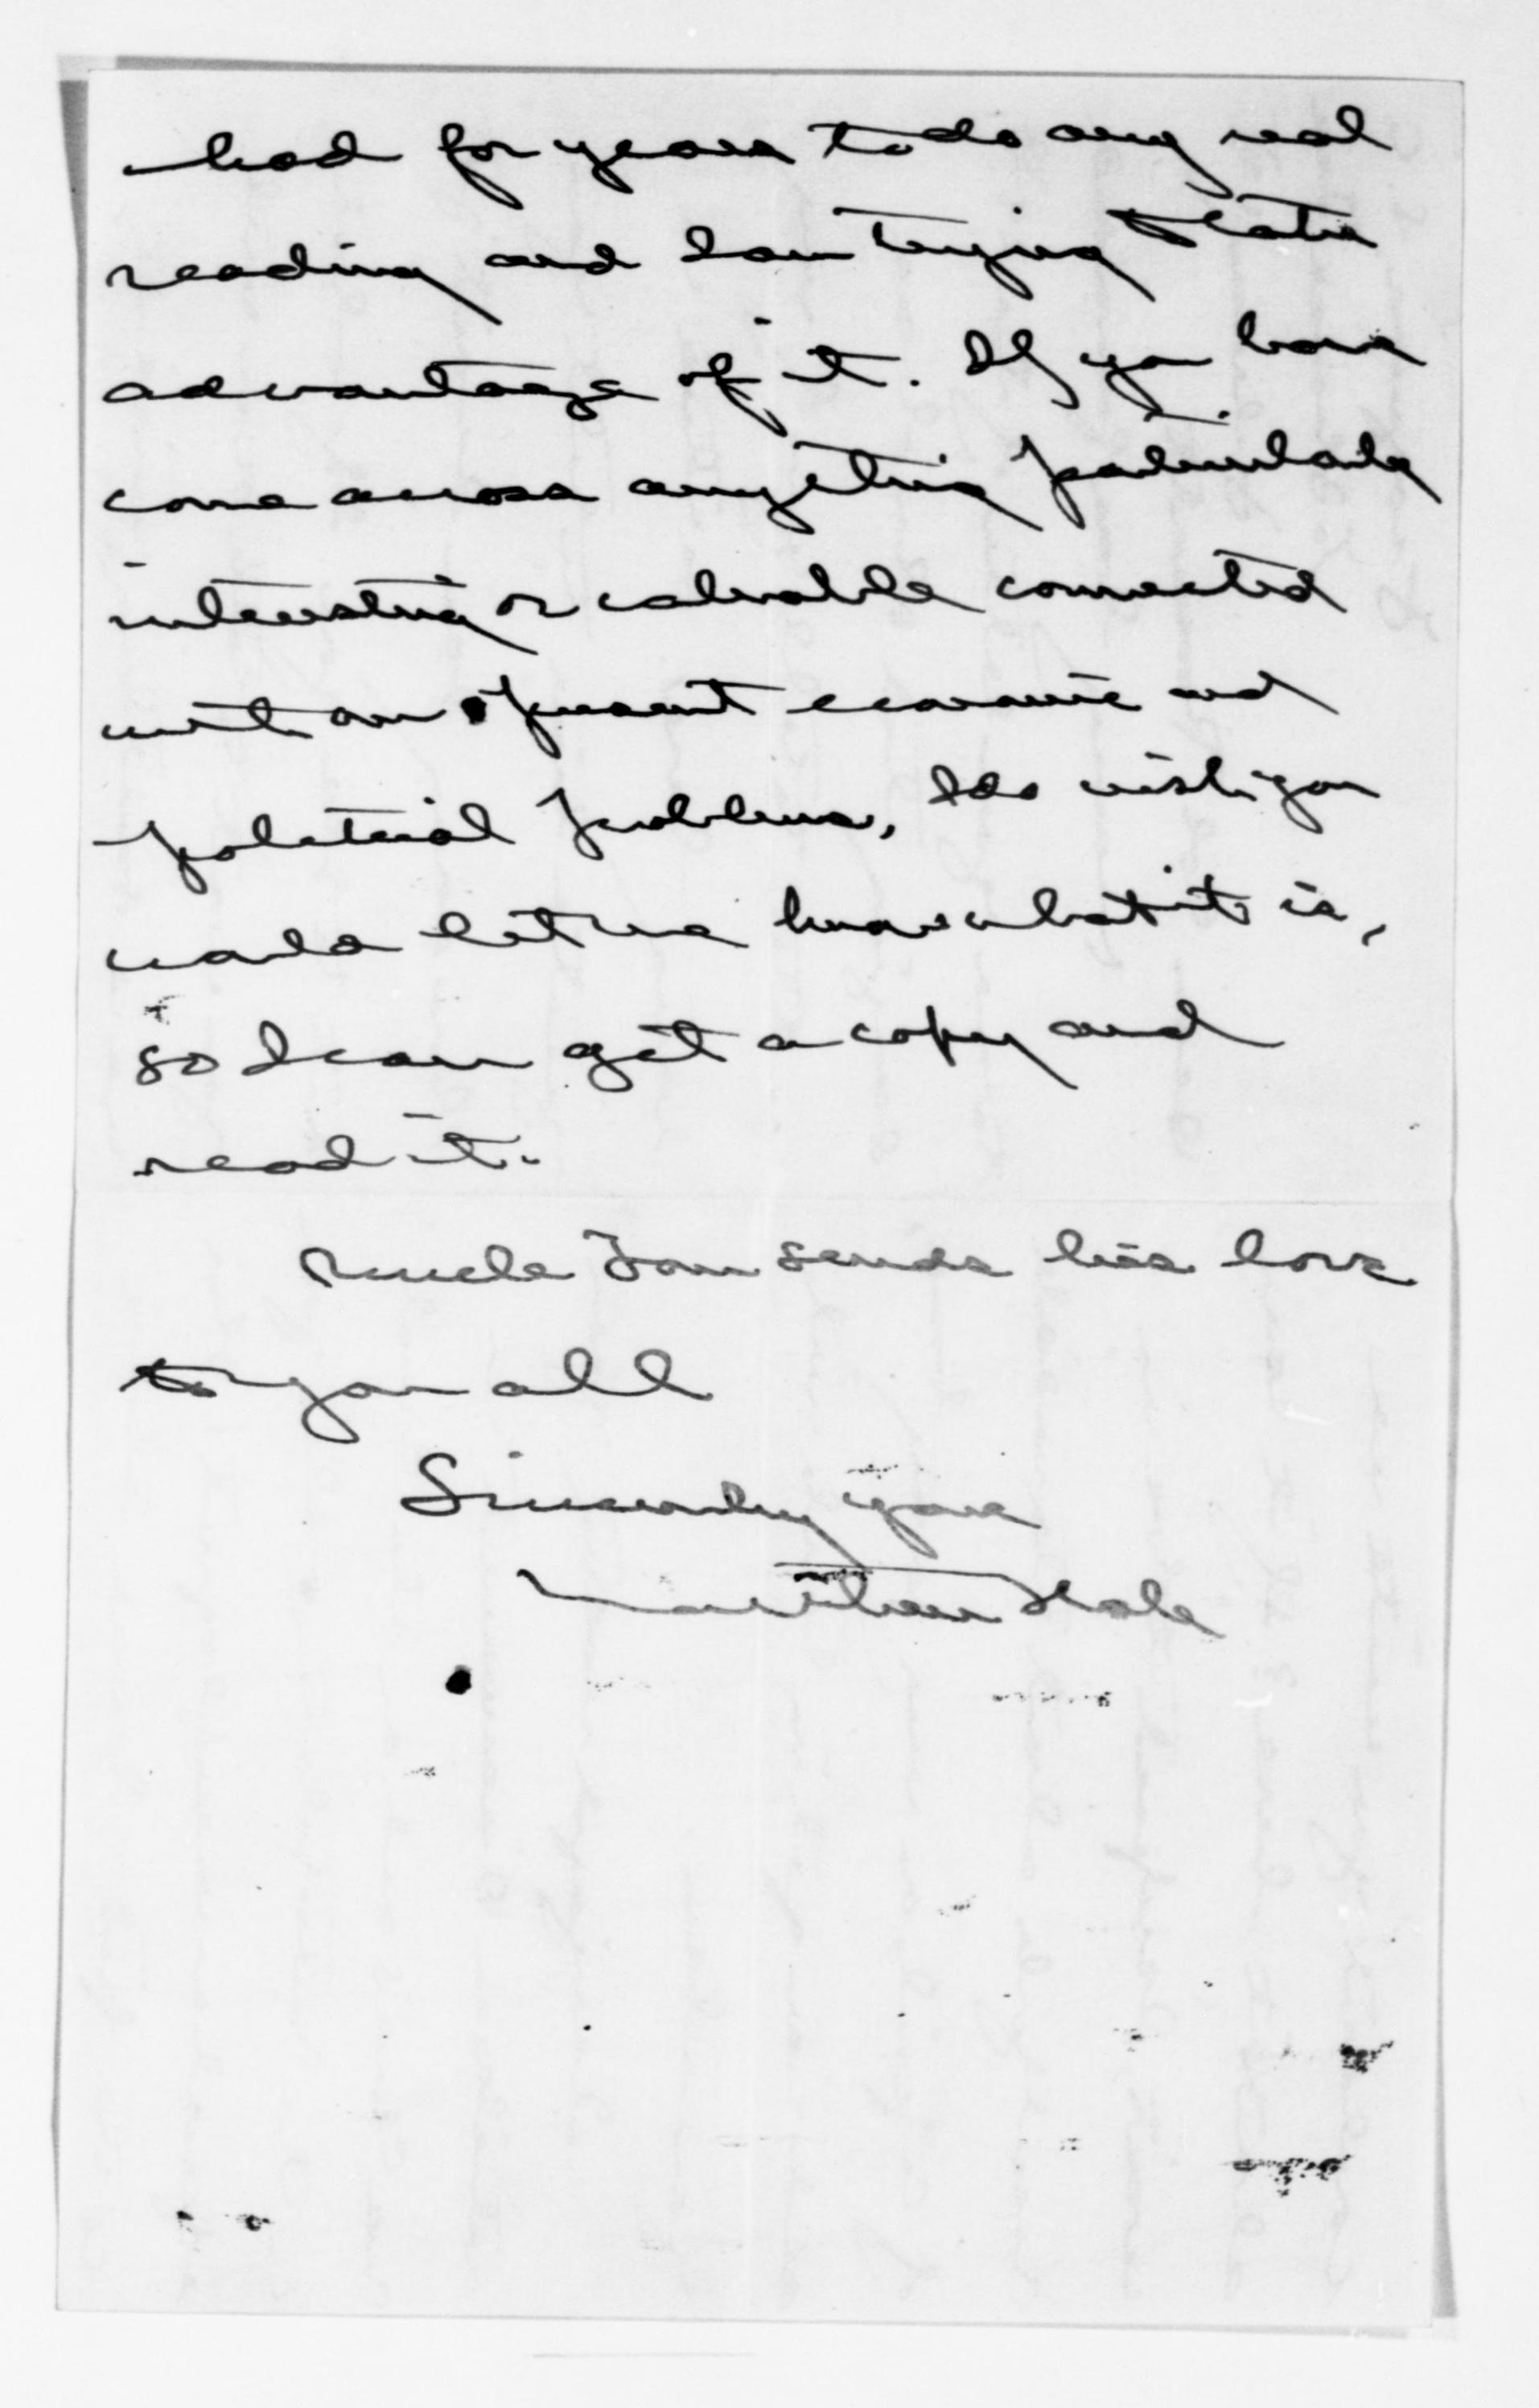 had for years to do any real
reading and I am trying to take
advantage of it. If you have
come across anything particularly
interesting or valuable connected
with our present economic and
political problems, I do wish you
would let me know what it is,
so I can get a copy and
read it.
Uncle Tom sends his love
to you all
Sincerely yours
Matthew Hale